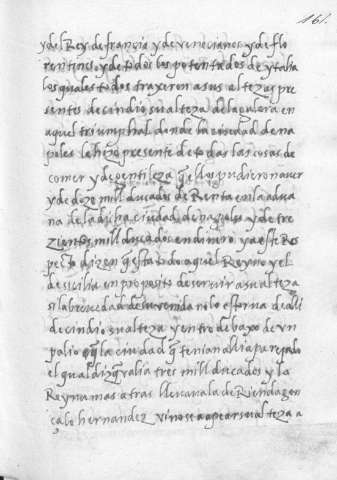 161.
y del Rey de françia y de veneçianos y de flo
rentines y de todos los potentados de ytalia
los quales todos traxeron a sus altezas pres
sentes decindio su alteza de la galera en
aquel triumphal donde la ciudad de na
poles le hizo presente de todas las cosas de
comer y de gentileza q̃ ellos pudieron aver
y de doze mill ducados de Renta en la adua
na de la dicha ciudad de napoles y de tre
zientos mill ducados en dinero y a este Res
pecto dizen q̃ esta todo aquel Reyno y el
de sicilia en proposito de servir a su alteza
si la brevedad de su venida no lo estorva de alli
decindio su alteza y entro debaxo de vn
palio q̃ la ciudad q̃ tenian alli aparejado
el qual dizq̃ valia tres mill ducados y la
Reyna mas atras llevavala de Rienda gon
çalo hernandez vinose a apear su alteza a